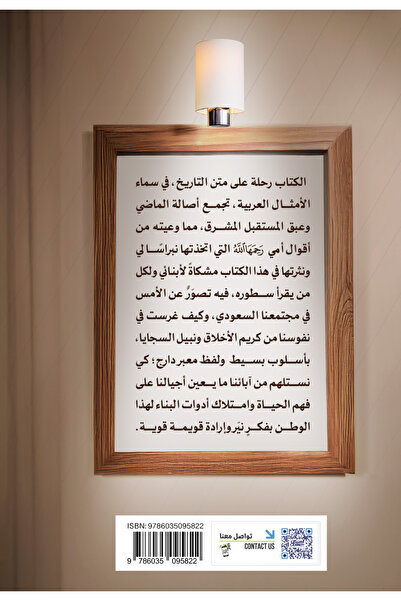 الكتاب رحلة على متن التاريخ، في سماء
الأمثال العربية، تجمع أصالة الماضي
وعبق المستقبل المشرق، مما وعيته من
أقوال أمي رَحِمَهَا اللَّهُ التي اتخذتها نبراسًا لي
ونثرتها في هذا الكتاب مشكاةً لأبنائي ولكل
من يقرأ سطوره، فيه تصوّرٌ عن الأمس
في مجتمعنا السعودي، وكيف غرست في
نفوسنا من كريم الأخلاق ونبيل السجايا،
بأسلوب بسيط ولفظ معبر دارج؛ كي
نستلهم من آبائنا ما يعين أجيالنا على
فهم الحياة وامتلاك أدوات البناء لهذا
الوطن بفكرٍ نيّر وإرادة قويمة قوية.
ISBN: 9786035095822
9 786035 095822
تواصل معنا
CONTACT US